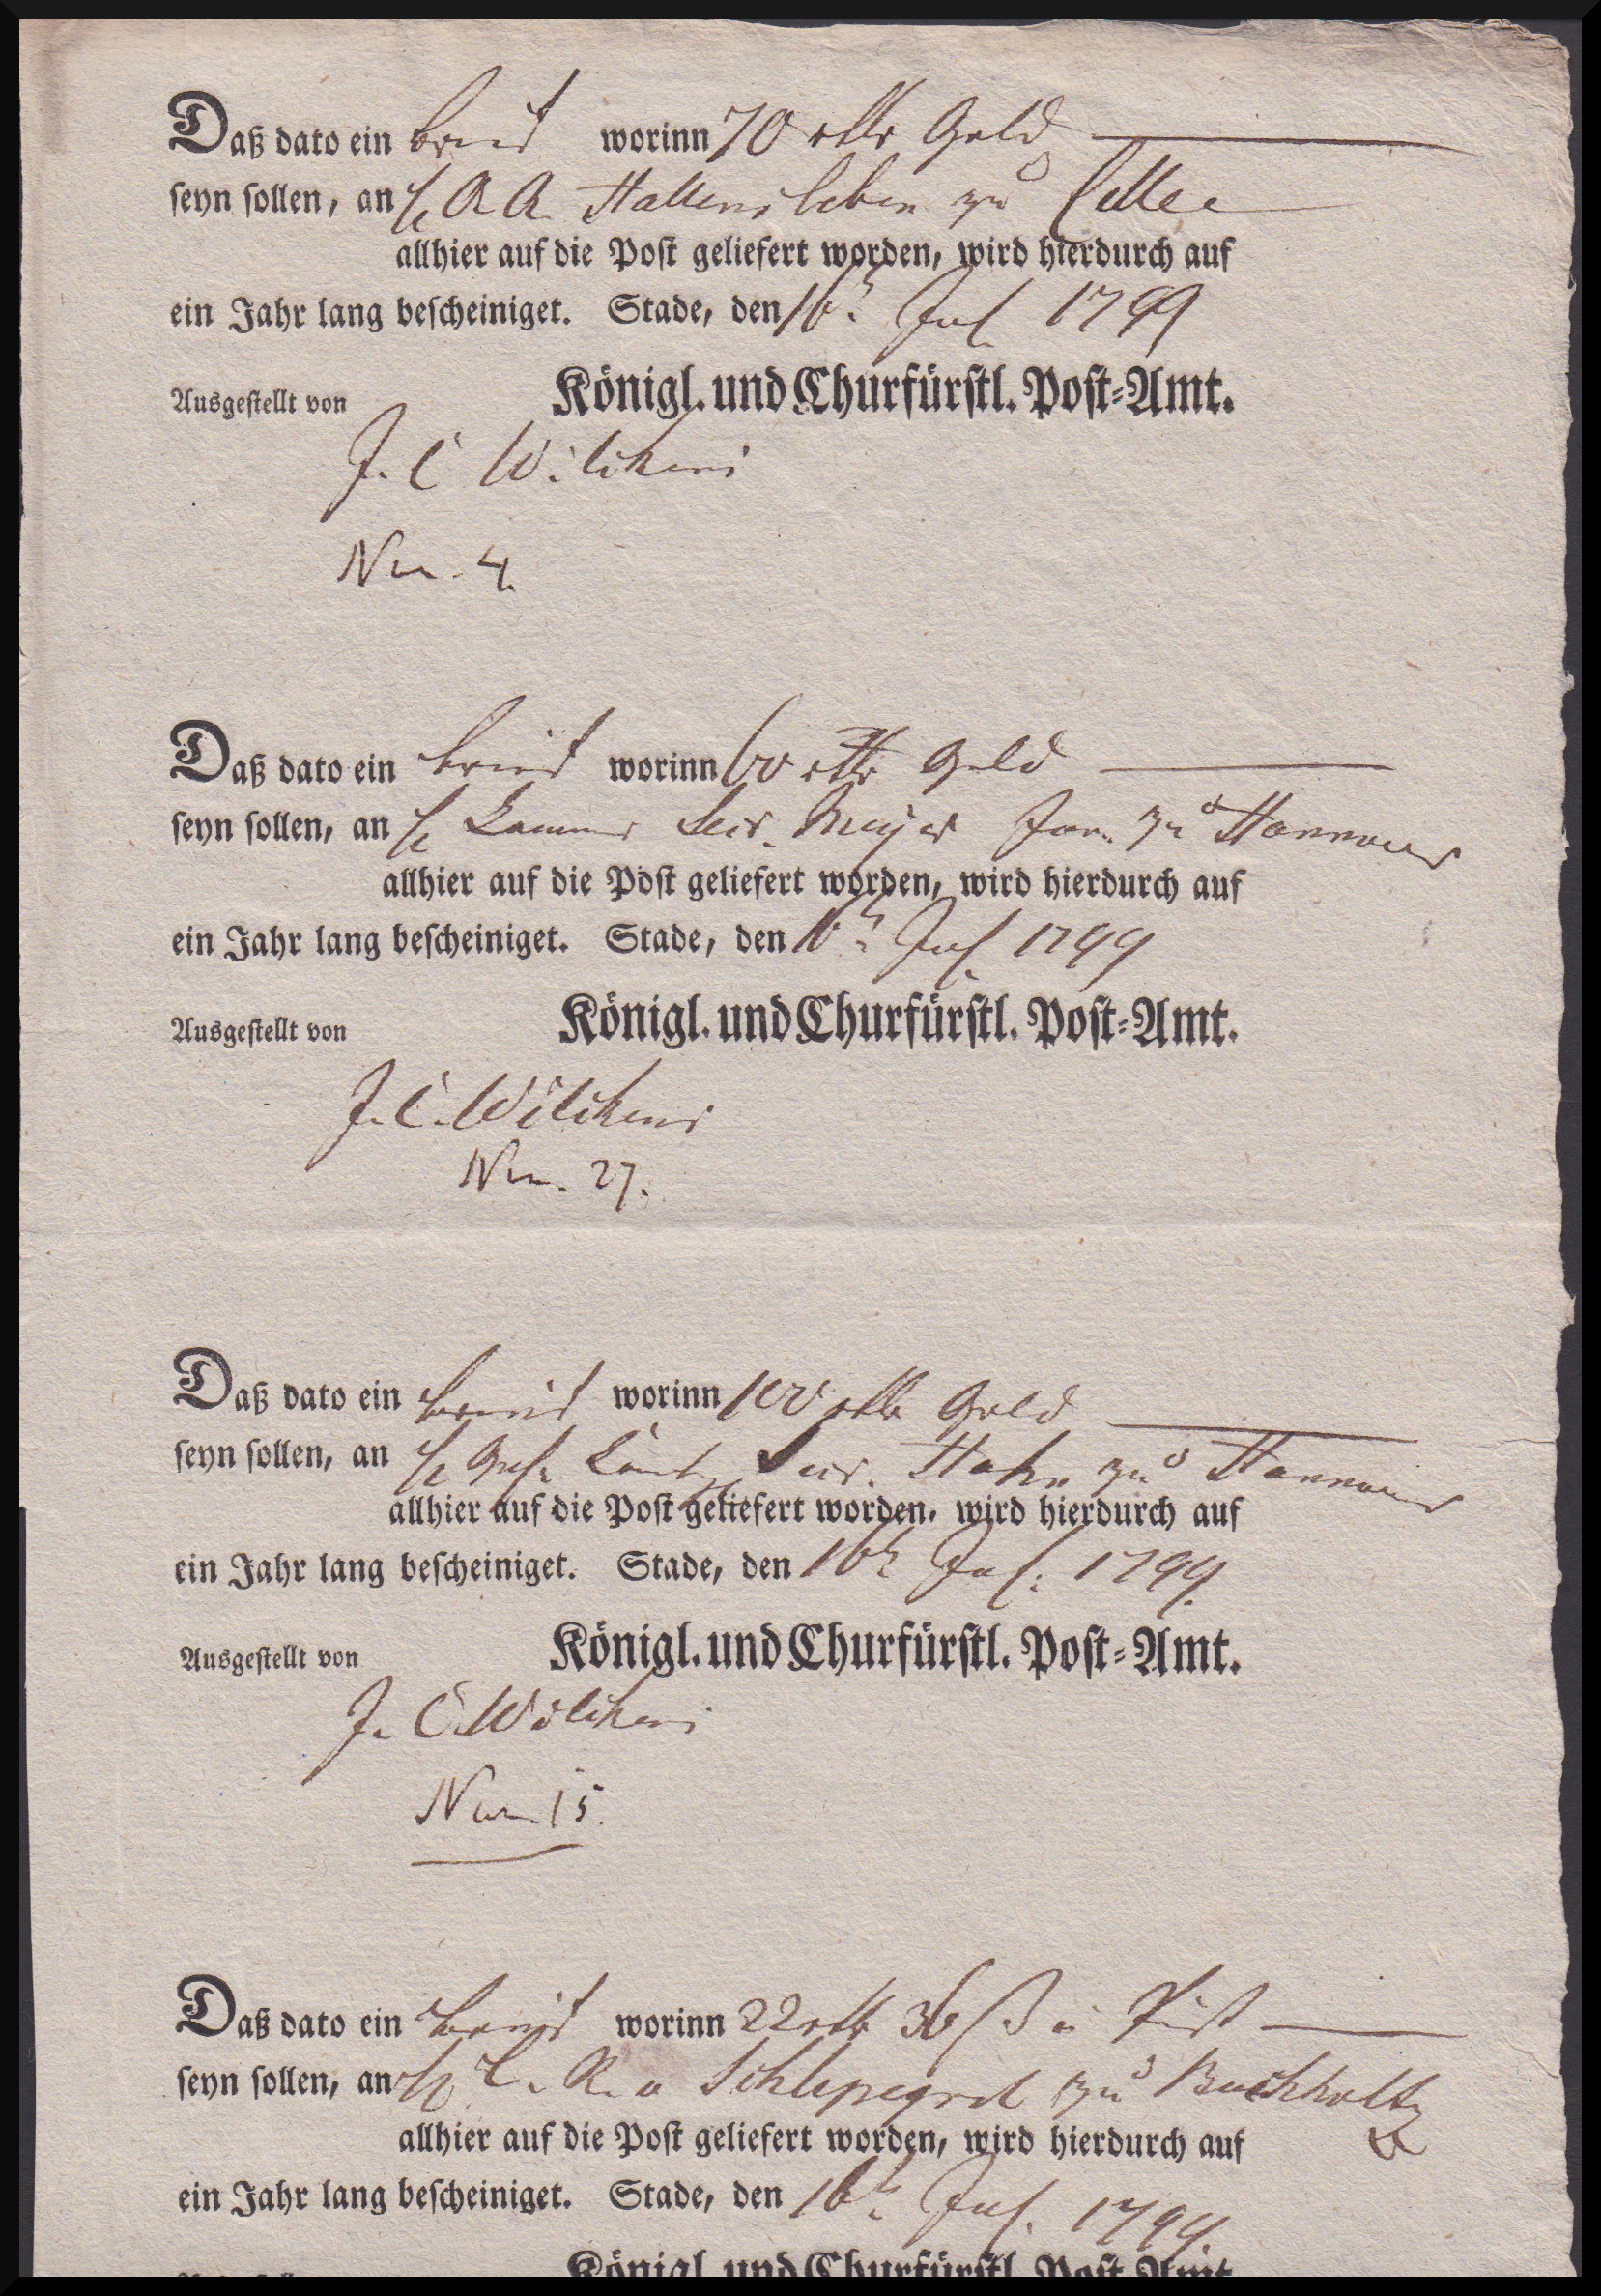 Daß dato ein brief worinn 70 rthr Gold
seyn sollen, an H A. A. Hattensleben zu Celle
allhier auf die Post geliefert worden, wird hierdurch auf
ein Jahr lang bescheiniget. Stade, den 16t Jul. 1799
Königl. und Churfürstl. Post-Amt.
Ausgestellt von
J. C Wilckens
Nro. 4.
Daß dato ein brief worinn 60 rthr Gold
seyn sollen, an H Cammer Secr. Meyer Jun. zu Hannover
allhier auf die Post geliefert worden, wird hierdurch auf
ein Jahr lang bescheiniget. Stade, den 16t Jul. 1799
Königl. und Churfürstl. Post-Amt.
Ausgestellt von
J. C. Wilckens
Nro. 27.
Daß dato ein brief worinn 100 rthr Gold
seyn sollen, an H Geh. Secr. Hahn zu Hannover
allhier auf die Post geliefert worden, wird hierdurch auf
ein Jahr lang bescheiniget. Stade, den 16t Jul: 1799.
Königl. und Churfürstl. Post-Amt.
Ausgestellt von
J. C. Wilckens
Nro. 15.
Daß dato ein brief worinn 22 rthr 36 ß
seyn sollen, an H C. R. v Schlepegrel zu Buchholtz
allhier auf die Post geliefert worden, wird hierdurch auf
ein Jahr lang bescheiniget. Stade, den 16t Jul. 1799.
Königl. und Churfürstl. Post-Amt.